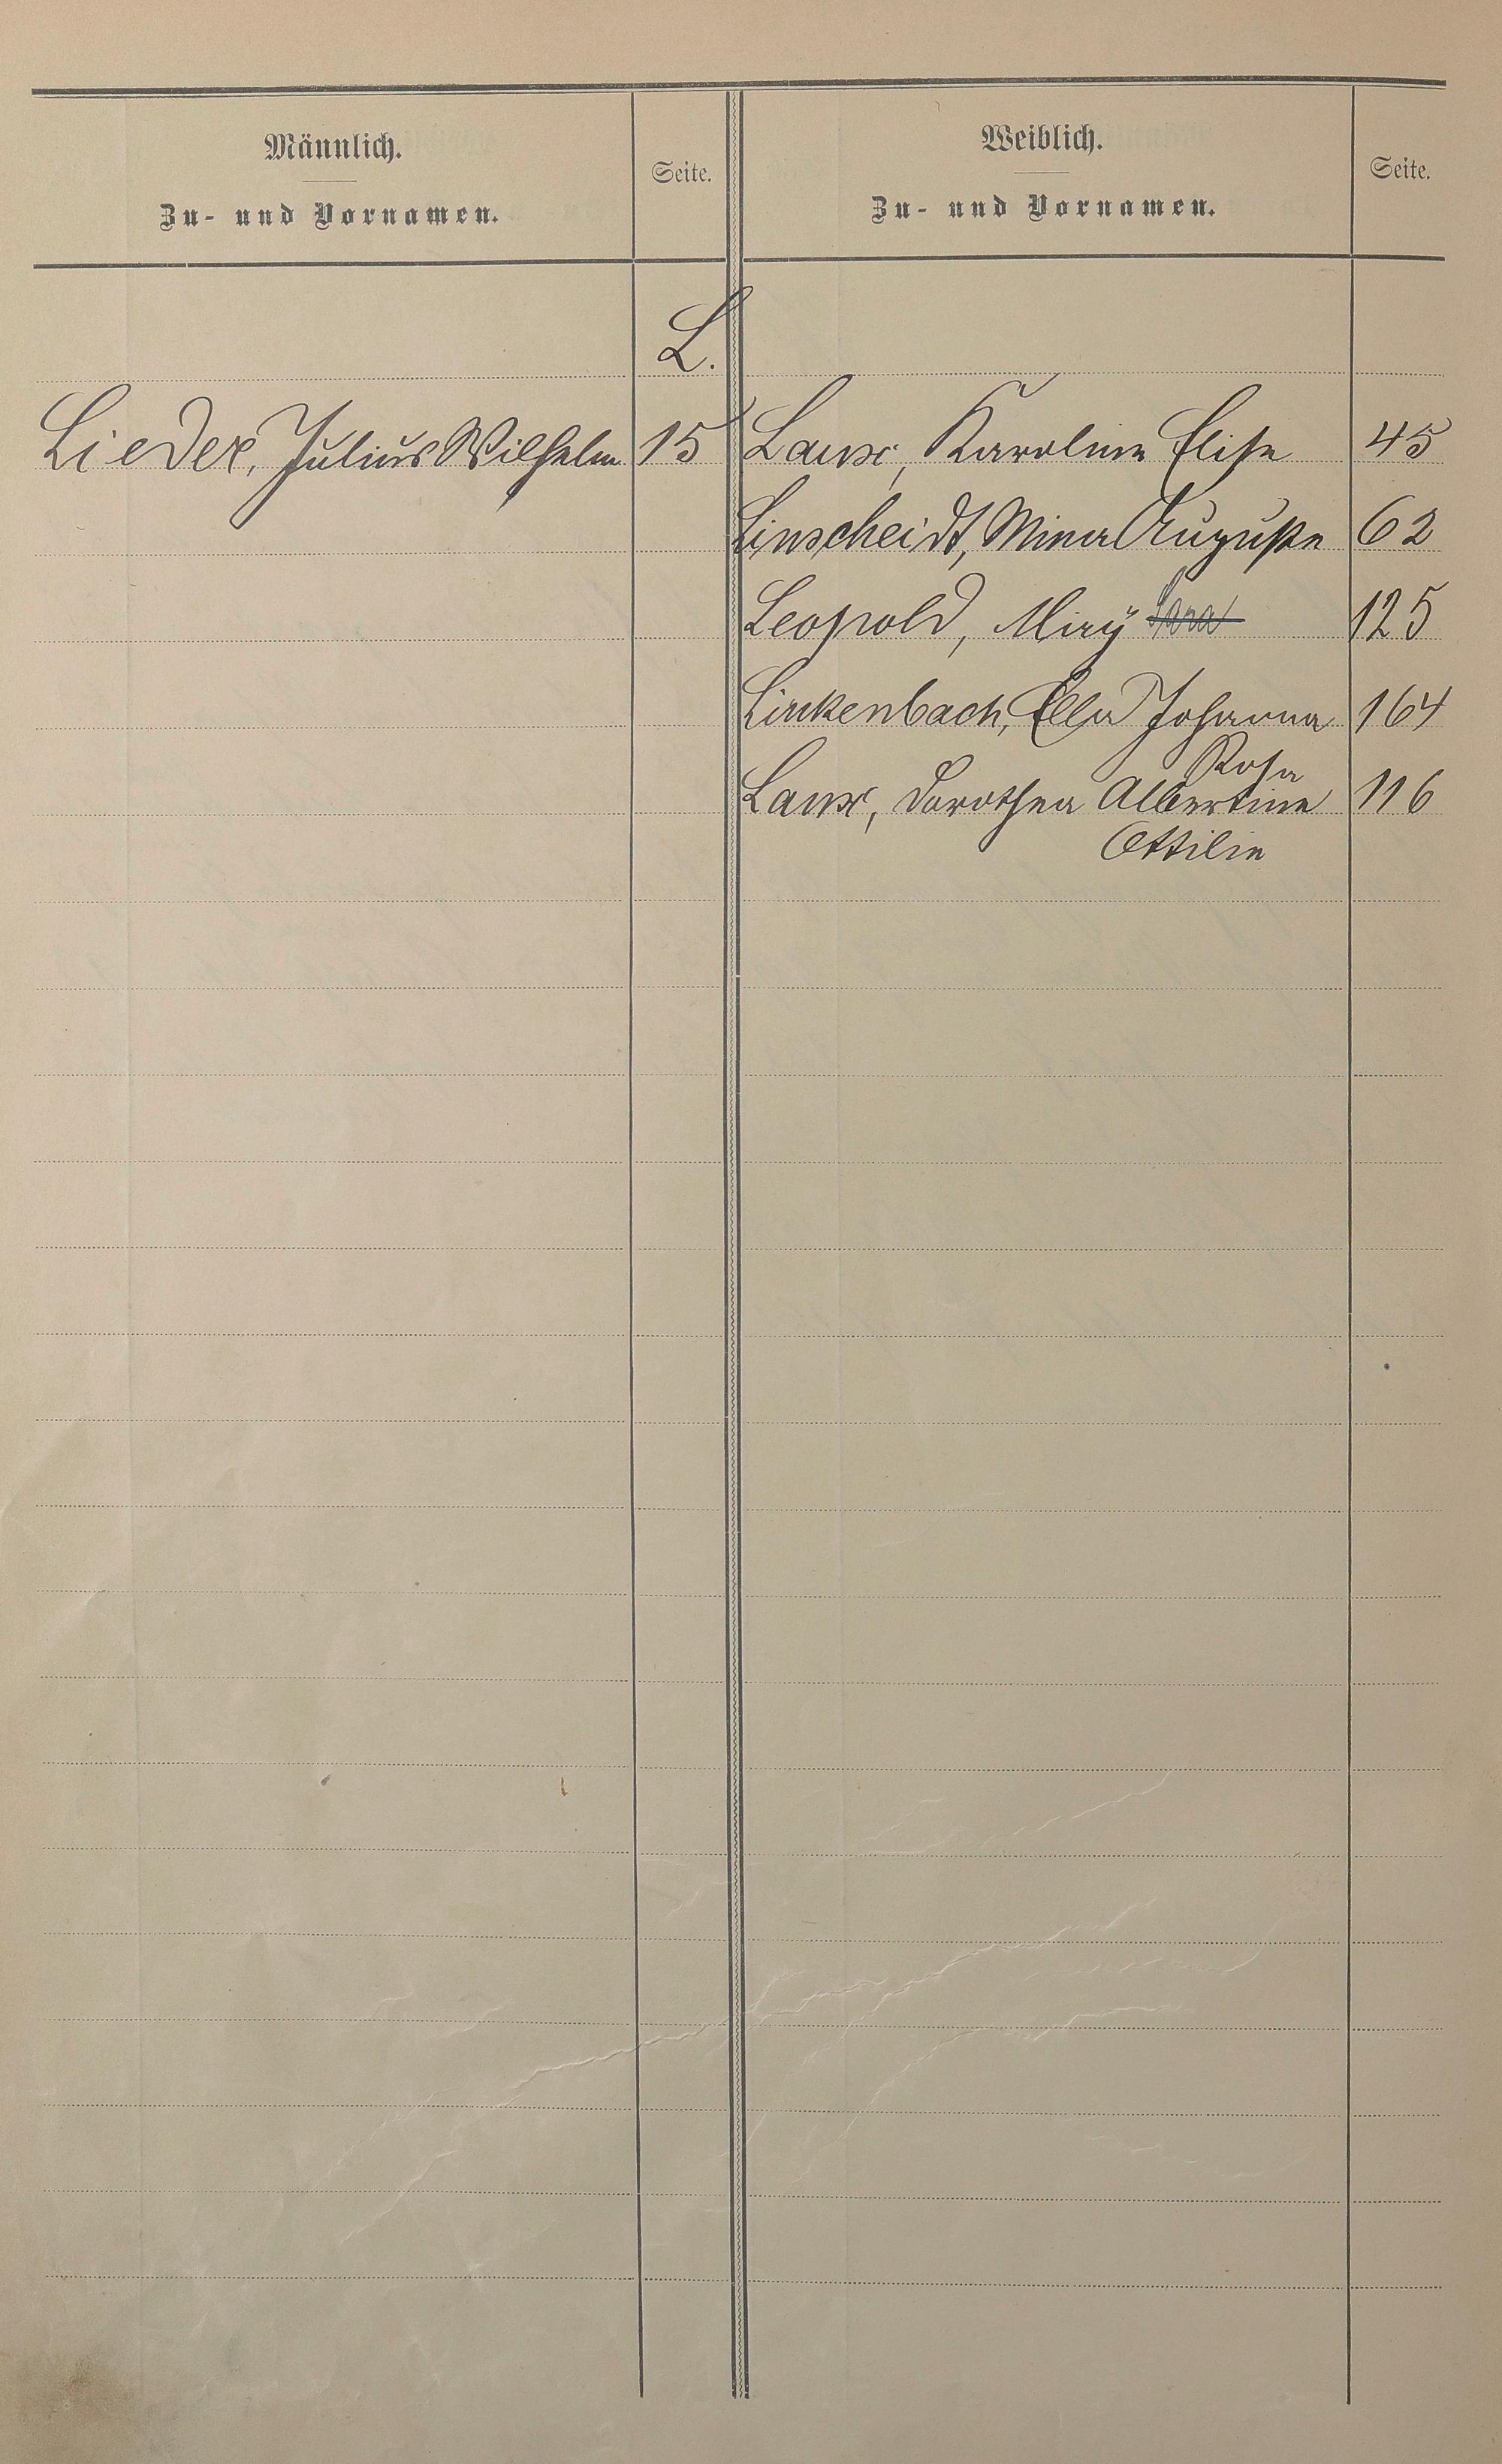 Männlich.
Zu- und Vornamen.
Seite.
Weiblich.
Zu- und Vornamen.
Seite.
L.
Lieder, Julius Wilhelm 15
Laux, Karoline Elise 45
Linscheidt, Mina Auguste 62
Leopold, Miry Sara 125
Linkenbach, Ella Johanna 164
Rosa
Laux, Dorothea Albertine 116
Ottilie